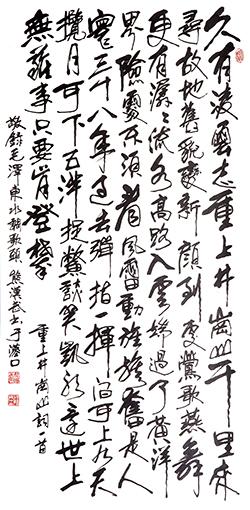 久有凌云志重上井岗山千里来
寻故地旧貌变新颜到处莺歌燕舞
更有潺潺流水高路入云端过了黄洋
界险处不须看风雷动旌旗奋是人
寰三十八年过去弹指一挥间可上九天
揽月可下五洋捉鳖谈笑凯歌还世上
无难事只要肯登攀
重上井岗山词一首
敬录毛泽东水调歌头 熊汉武于汉口